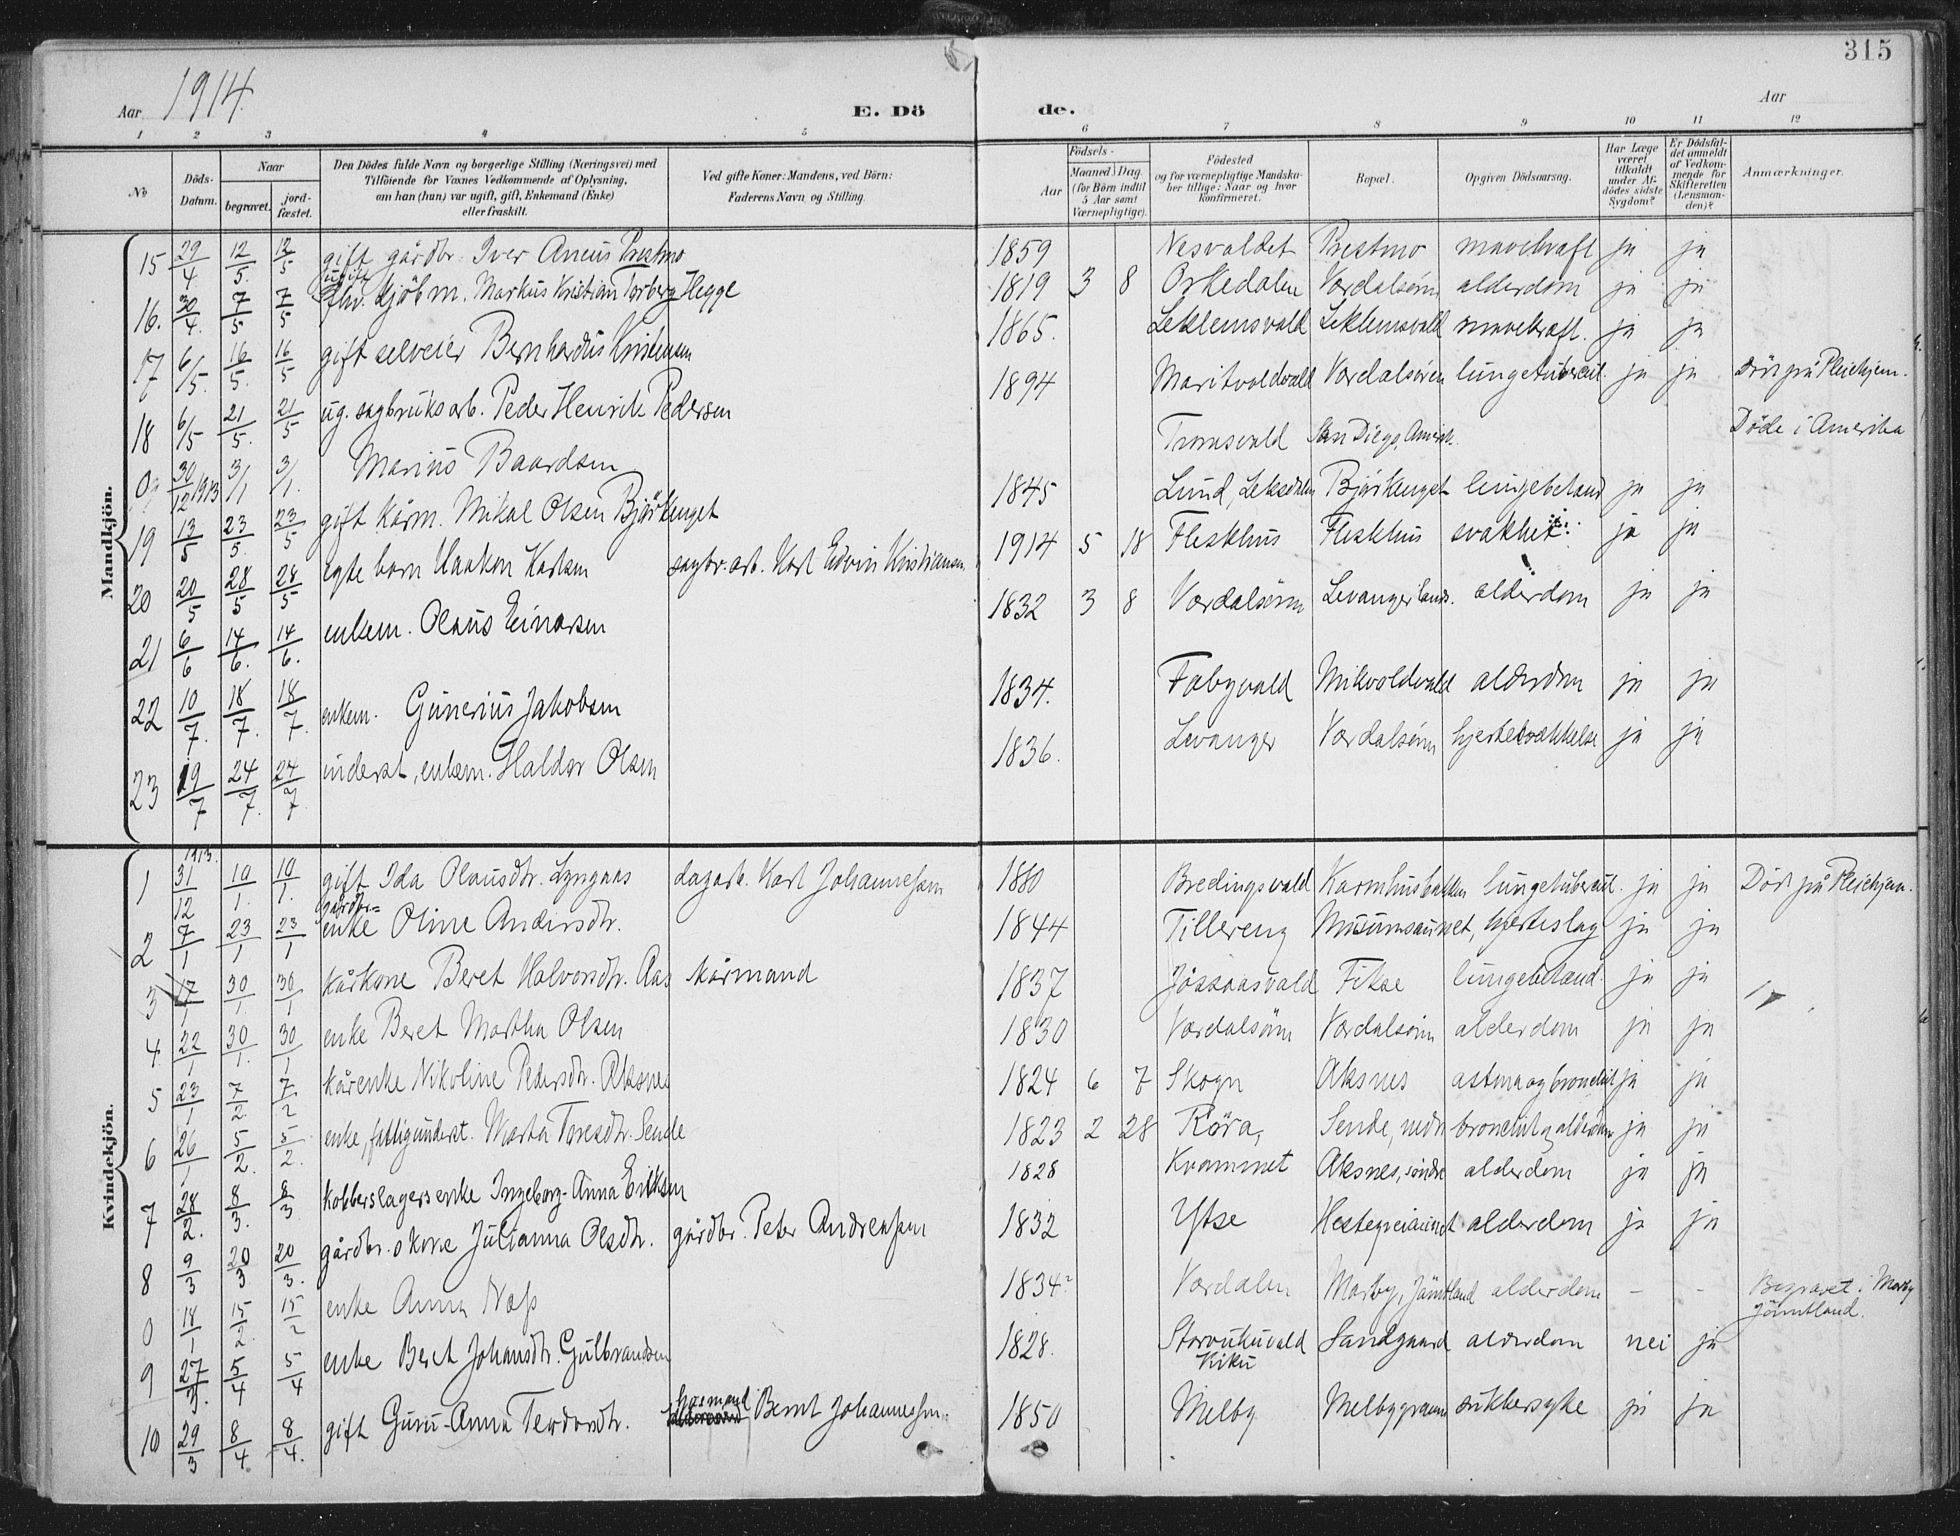 315
Aar 1914.
E. Döde.
Aar
1 2 3 4 5 6 7 8 9 10 11 12
No
Döds-Datum.
Naar
begravet.
jord-fæstet.
Den Dödes fulde Navn og borgerlige Stilling (Næringsvei) med
Tilföiende for Voxnes Vedkommende af Oplysning,
om han (hun) var ugift, gift, Enkemand (Enke)
eller fraskilt.
Ved gifte Koner: Mandens, ved Börn:
Faderens Navn og Stilling.
Födsels-
Aar
Maaned Dag
(for Börn indtil
5 Aar samt
Værnepligtige).
Födested
og for værnepligtige Mandska-
ber tillige: Naar og hvor
konfirmeret.
Bopæl.
Opgiven Dödsaarsag.
Har Læge
været
tilkaldt
under Af-
dödes sidste
Sygdom?
Er Dödsfal-
det anmeldt
af Vedkom-
mende for
Skifteretten
(Lensman-
den)?
Anmærkninger.
Mandkjön.
15 29/4 12/5. 12/5 gift gårdbr. Iver Aneus Prestmo 1859 Nesvaldet Prestmo mavekraft ja ja
16. 30/4. 7/5 7/5 ugift fhv. kjöbm. Markus Kristian Torberg Hegge 1819 3 8 Orkedalen Værdalsøren alderdom ja ja
17 6/5. 16/5. 16/5 gift selveier Bernhardus Kristensen 1865. Leklemsvald Leklemsvald mavekraft. ja ja
18 6/5 21/5. 21/5 ug. sagbruksarb. Peder Henrik Pedersen 1894 Maritvoldvald Værdalsøren lungetubercul. ja ja Död på Pleiehjem.
0 30/12 1913 3/1 3/1. Marius Baardsen Tromsvald San Diego, Amerik. Døde i Amerika
19 13/5 23/5. 23/5 gift kårm. Mikal Olsen Bjørkenget 1845 Lund, Leksdalen Bjørkenget lungebetænd ja ja
20 20/5 28/5 28/5 egte barn Haakon Karlsen sagbr.arb. Karl Edvin Kristiansen 1914 5 18 Fleskhus Fleskhus svakhet ja ja
21 6/6 14/6. 14/6. enkem. Olaus Einarsen 1832 3 8 Værdalsøren Levanger lands. alderdom ja ja
22 10/7. 18/7. 18/7. enkem. Gunerius Jakobsen 1834. Fabyvald Mikvoldvald alderdom ja ja
23 19/7 24/7. 24/7. inderst, enkem. Haldor Olsen 1836. Levanger Værdalsøren hjertesvækkelse ja ja
Kvindekjön.
1 1913. 31/12 10/1. 10/1. gift Ida Olausdtr. Lyngaas dagarb. Karl Johannessen 1880 Bredingsvald Karmhusbakken lungetubercul. ja ja Död på Pleiehjem.
2 7/1 23/1 23/1 gårdbr= enke Oline Andersdtr. 1844 Tillereng Musumsaunet, hjerteslag ja ja
3 17/1 30/1. 30/1 kårkone Beret Halvorsdtr. Aas kårmand 1837 Jössaasvald Fikse lungebetænd. ja ja
4 22/1 30/1. 30/1 enke Beret Martha Olsen 1830 Værdalsøren Værdalsøren alderdom ja ja
5 23/1 7/2. 7/2 kårenke Nikoline Pedersdtr. Aksnes 1824 6 7 Skogn Aksnes astma og bronchit ja ja
6 26/1 5/2. 5/2. enke, fattigunderst. Marta Toresdtr. Sende 1823 2 28 Röra, Sende, nedre bronchit og alderdom ja ja
7 28/2. 8/3. 8/3 kobberslagersenke Ingeborg-Anna Eriksen 1828 Kvammet Aksnes, söndre alderdom ja ja
8 9/3 20/3 20/3. gårdbr.s kone Julianna Olsdtr. gårdbr. Peter Andreassen 1832 Ytse alderdom ja ja
0 18/1 15/2. 15/2 enke Anna Næss 1834? Værdalen Marby, Jämtland alderdom - - Begravet i Marby Jämtland.
9 27/3. 5/4 5/4 enke Beret Johansdtr. Gulbrandsen 1828. Storvukuvald Sandgaard alderdom nei ja
10 29/3 8/4 8/4. gift Guru-Anna Teodorsdtr. husmand Bernt Johannessen 1850 Melby sukkersyke ja ja